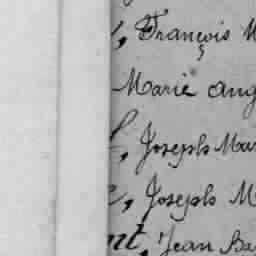 , François M
Marie Ang
, Joseph Mar
, Joseph M
nt, Jean Ba